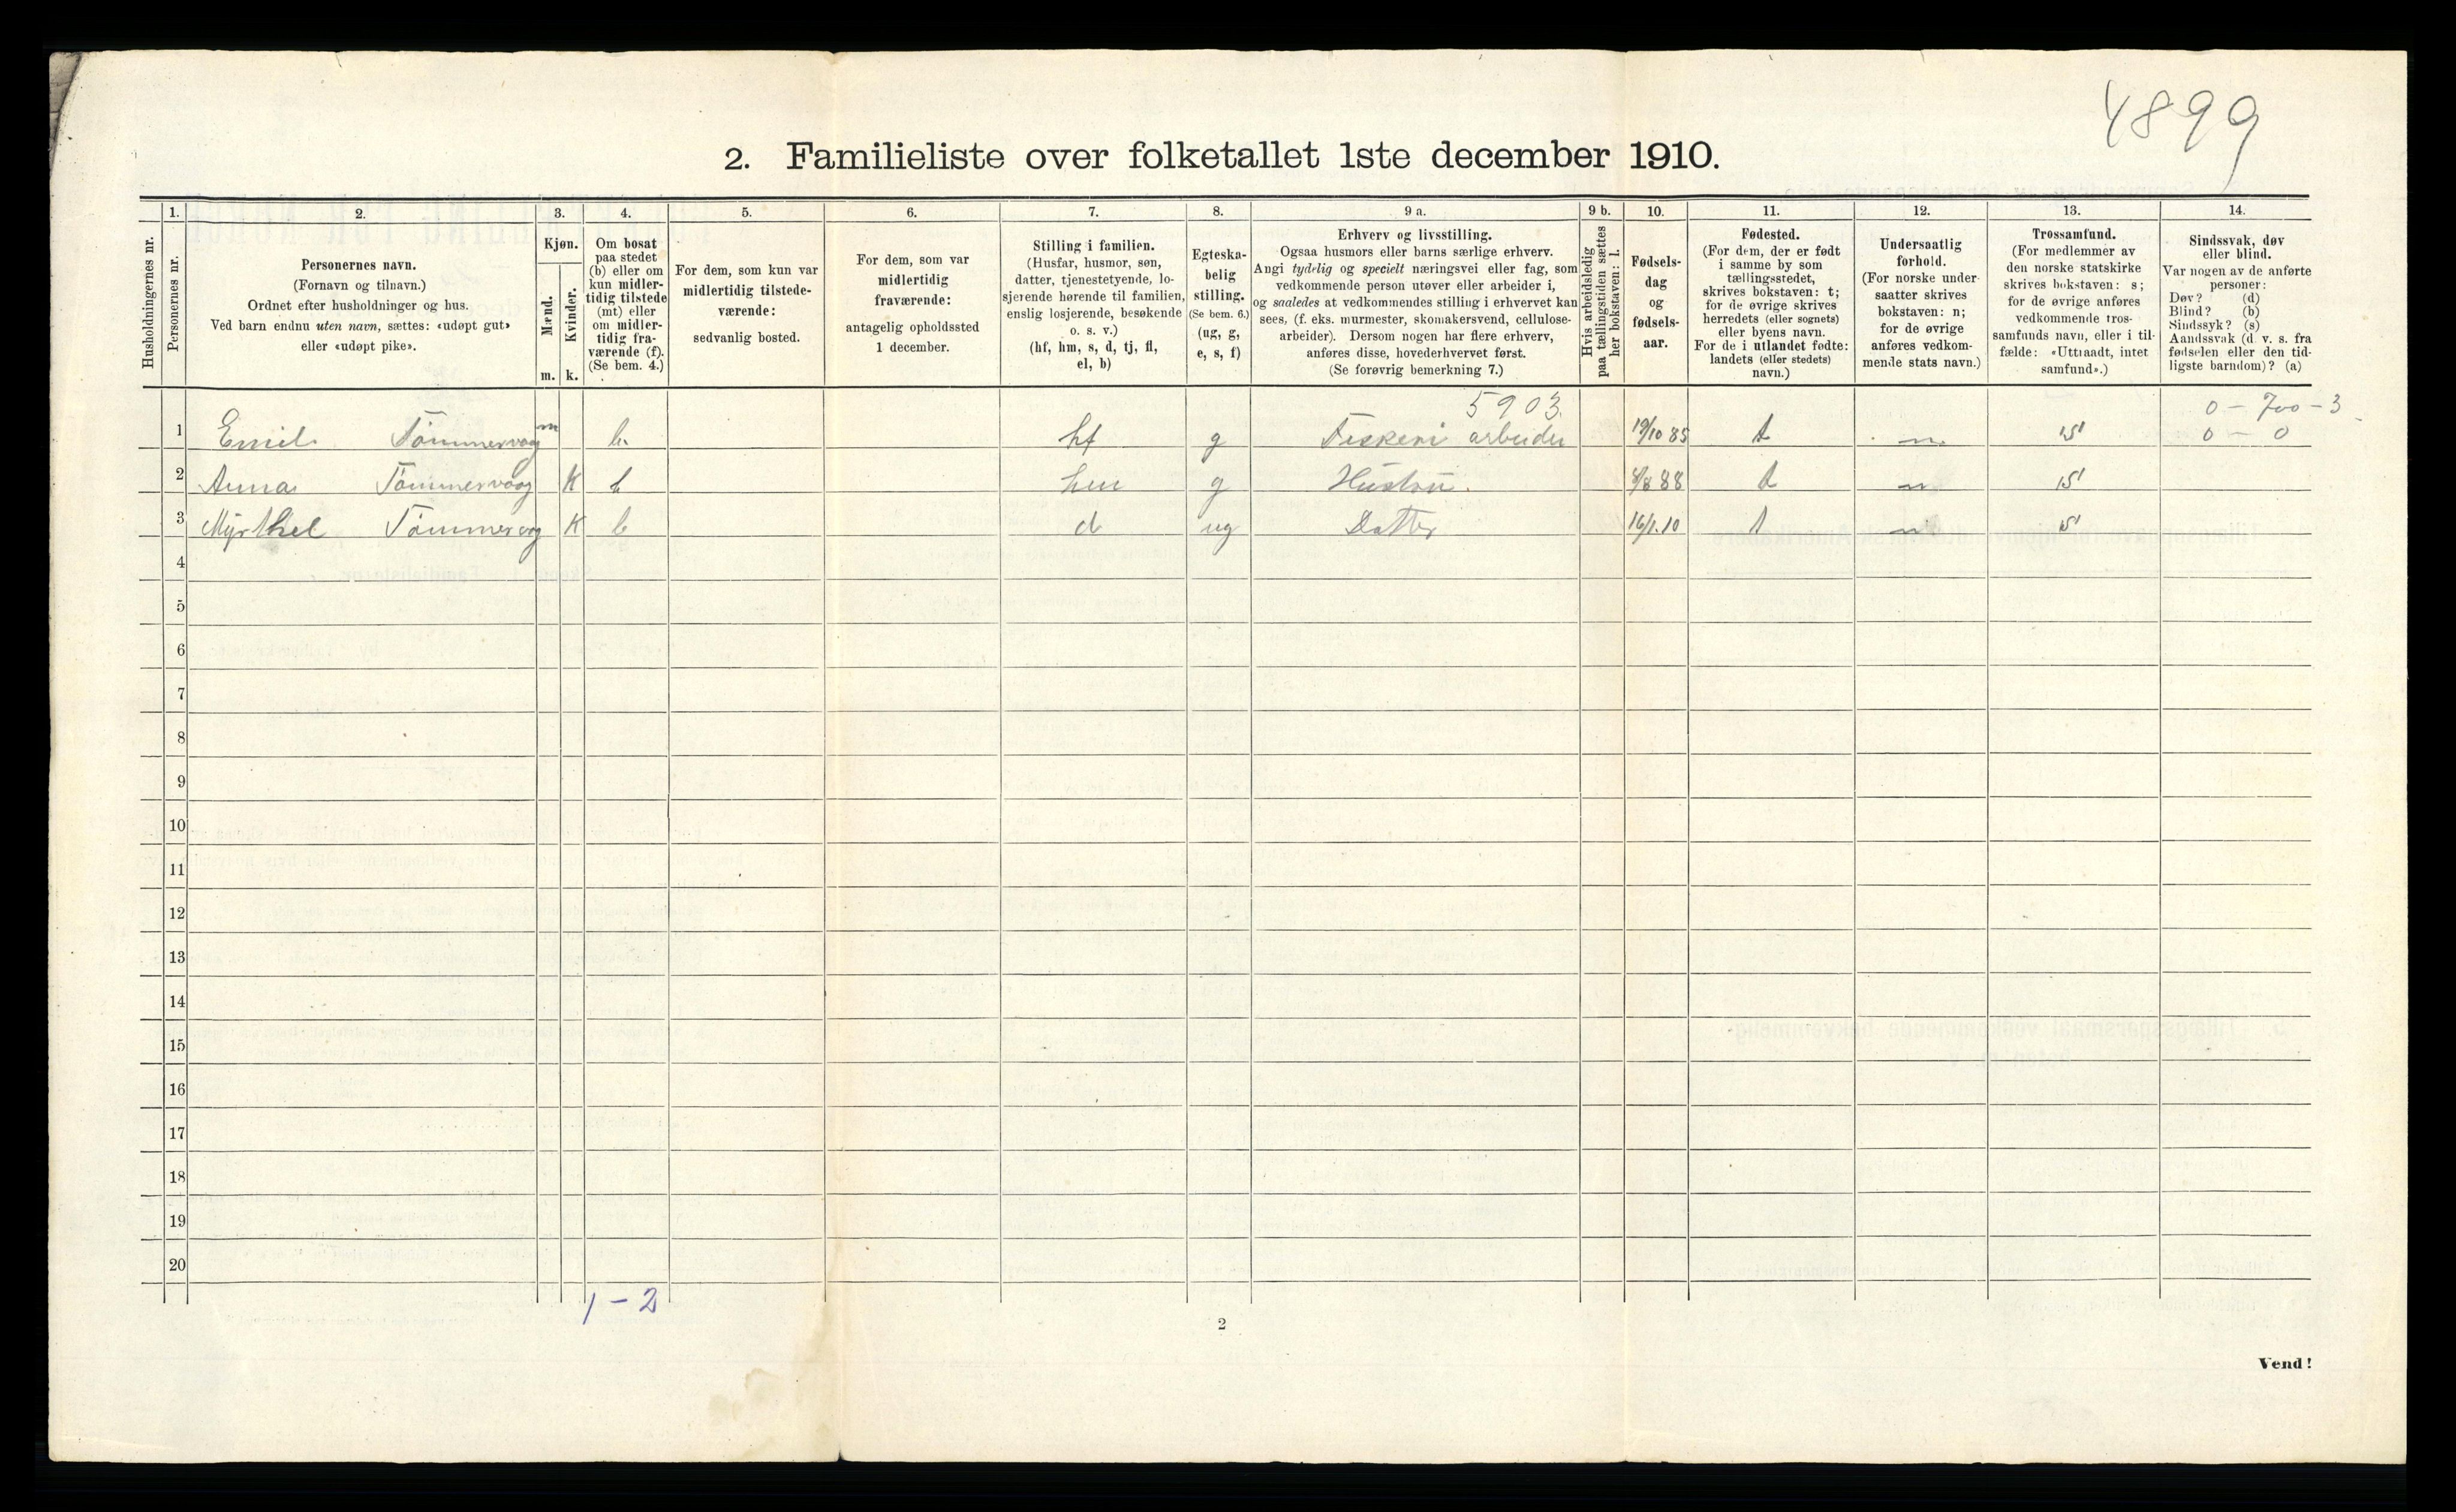 4899
2. Familieliste over folketallet 1ste december 1910.
Husholdningernes nr.
1.
Personernes nr.
2.
Personernes navn.
(Fornavn og tilnavn.)
Ordnet efter husholdninger og hus.
Ved barn endnu uten navn, sættes: «udøpt gut»
eller «udøpt pike».
3.
Kjøn.
Mænd.
Kvinder.
m. k.
4.
Om bosat
paa stedet
(b) eller om
kun midler-
tidig tilstede
(mt) eller
om midler-
tidig fra-
værende (f).
(Se bem. 4.)
5.
For dem, som kun var
midlertidig tilstede-
værende:
sedvanlig bosted.
6.
For dem, som var
midlertidig
fraværende:
antagelig opholdssted
1 december.
7.
Stilling i familien.
(Husfar, husmor, søn,
datter, tjenestetyende, lo-
sjerende hørende til familien,
enslig losjerende, besøkende
o. s. v.)
(hf, hm, s, d, tj, fl,
el, b)
8.
Egteska-
belig
stilling.
(Se bem. 6.)
(ug, g,
e, s, f)
9 a.
Erhverv og livsstilling.
Ogsaa husmors eller barns særlige erhverv.
Angi tydelig og specielt næringsvei eller fag, som
vedkommende person utøver eller arbeider i,
og saaledes at vedkommendes stilling i erhvervet kan
sees, (f. eks. murmester, skomakersvend, cellulose-
arbeider). Dersom nogen har flere erhverv,
anføres disse, hovederhvervet først.
(Se forøvrig bemerkning 7.)
9 b.
Hvis arbeidsledig
paa tællingstiden sættes
her bokstaven: l.
10.
Fødsels-
dag
og
fødsels-
aar.
11.
Fødested.
(For dem, der er født
i samme by som
tællingsstedet,
skrives bokstaven: t;
for de øvrige skrives
herredets (eller sognets)
eller byens navn.
For de i utlandet fødte:
landets (eller stedets)
navn.)
12.
Undersaatlig
forhold.
(For norske under-
saatter skrives
bokstaven: n;
for de øvrige
anføres vedkom-
mende stats navn.)
13.
Trossamfund.
(For medlemmer av
den norske statskirke
skrives bokstaven: s;
for de øvrige anføres
vedkommende tros-
samfunds navn, eller i til-
fælde: «Uttraadt, intet
samfund».)
14.
Sindssvak, døv
eller blind.
Var nogen av de anførte
personer:
Døv? (d)
Blind? (b)
Sindssyk? (s)
Aandssvak (d. v. s. fra
fødselen eller den tid-
ligste barndom)? (a)
5903. 0 – 700 – 3
1 Emil Tömmervaag m b. hf g Fiskeri arbeider 19/10 85 t n s 0 – 0
2 Anna Tömmervaag K b hm g Hustru. 88 t n s
3 Myrthel Tömmervog K b d ug Datter 16/1.10 t n s
4
5
6
7
8
9
10
11
12
13
14
15
16
17
18
19
20
1 – 2
2
Vend!